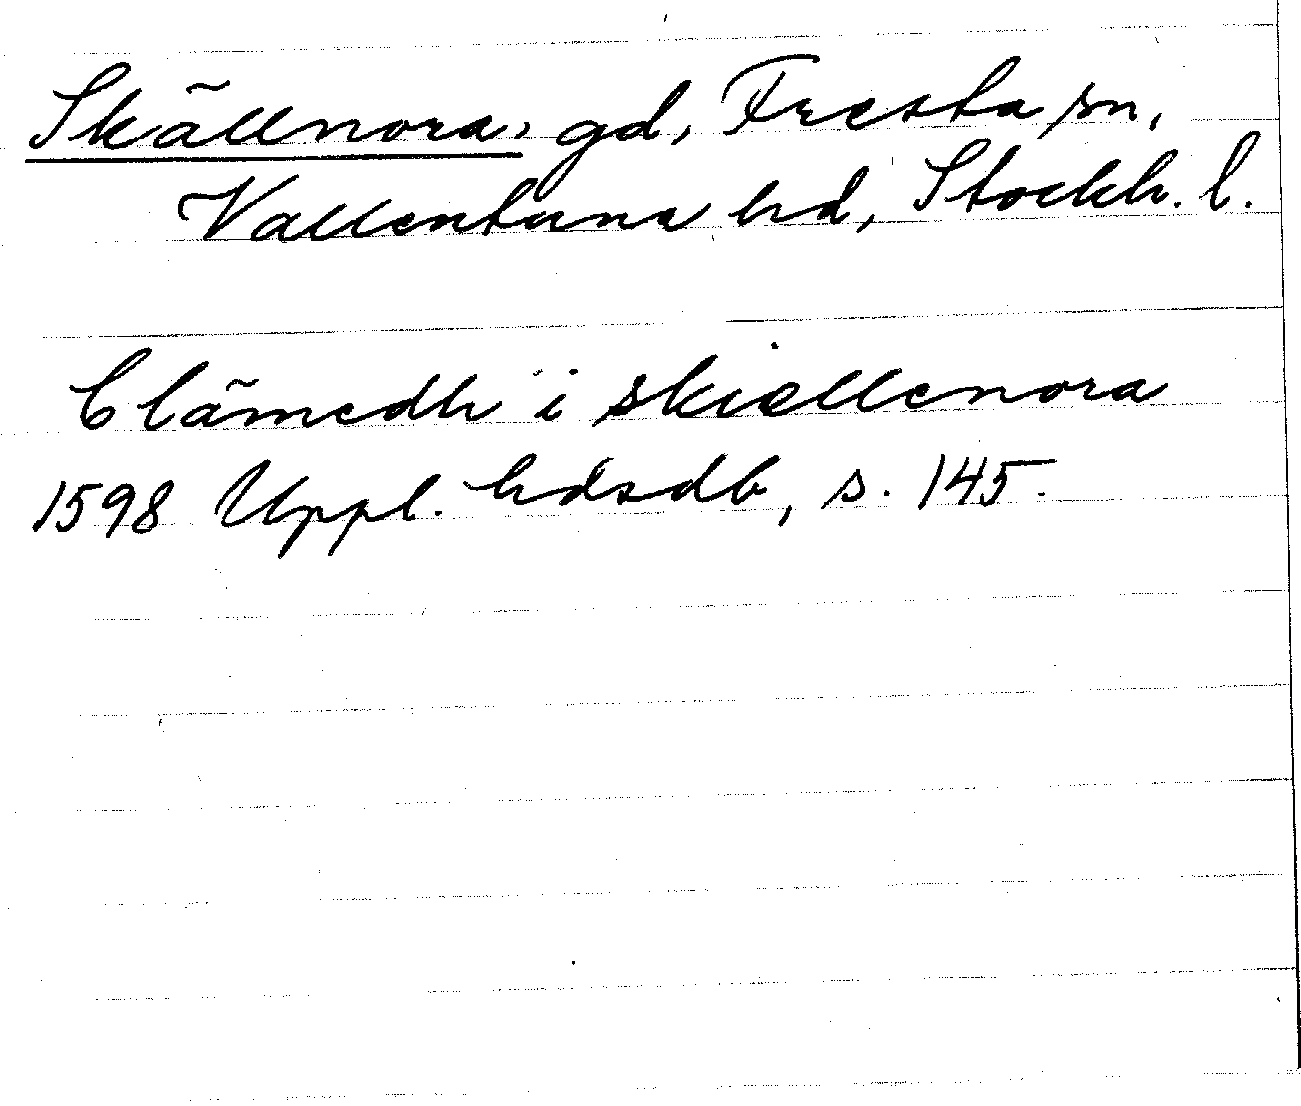 Skällnora, gd, Fresta sn,
Vallentuna hd, Stockh. l.
Clämedh i skiellenora
1598 Uppl. hdsdb, s. 145.